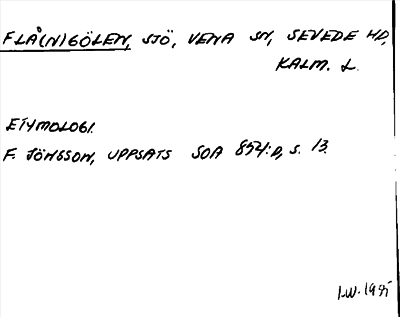 FLÅ(N)GÖLEN, SJÖ, VENA SN, SEVEDE HD,
KALM. L.
ETYMOLOGI.
F. JÖNSSON, UPPSATS SOA 854:D, S. 13.
I.W. 1995